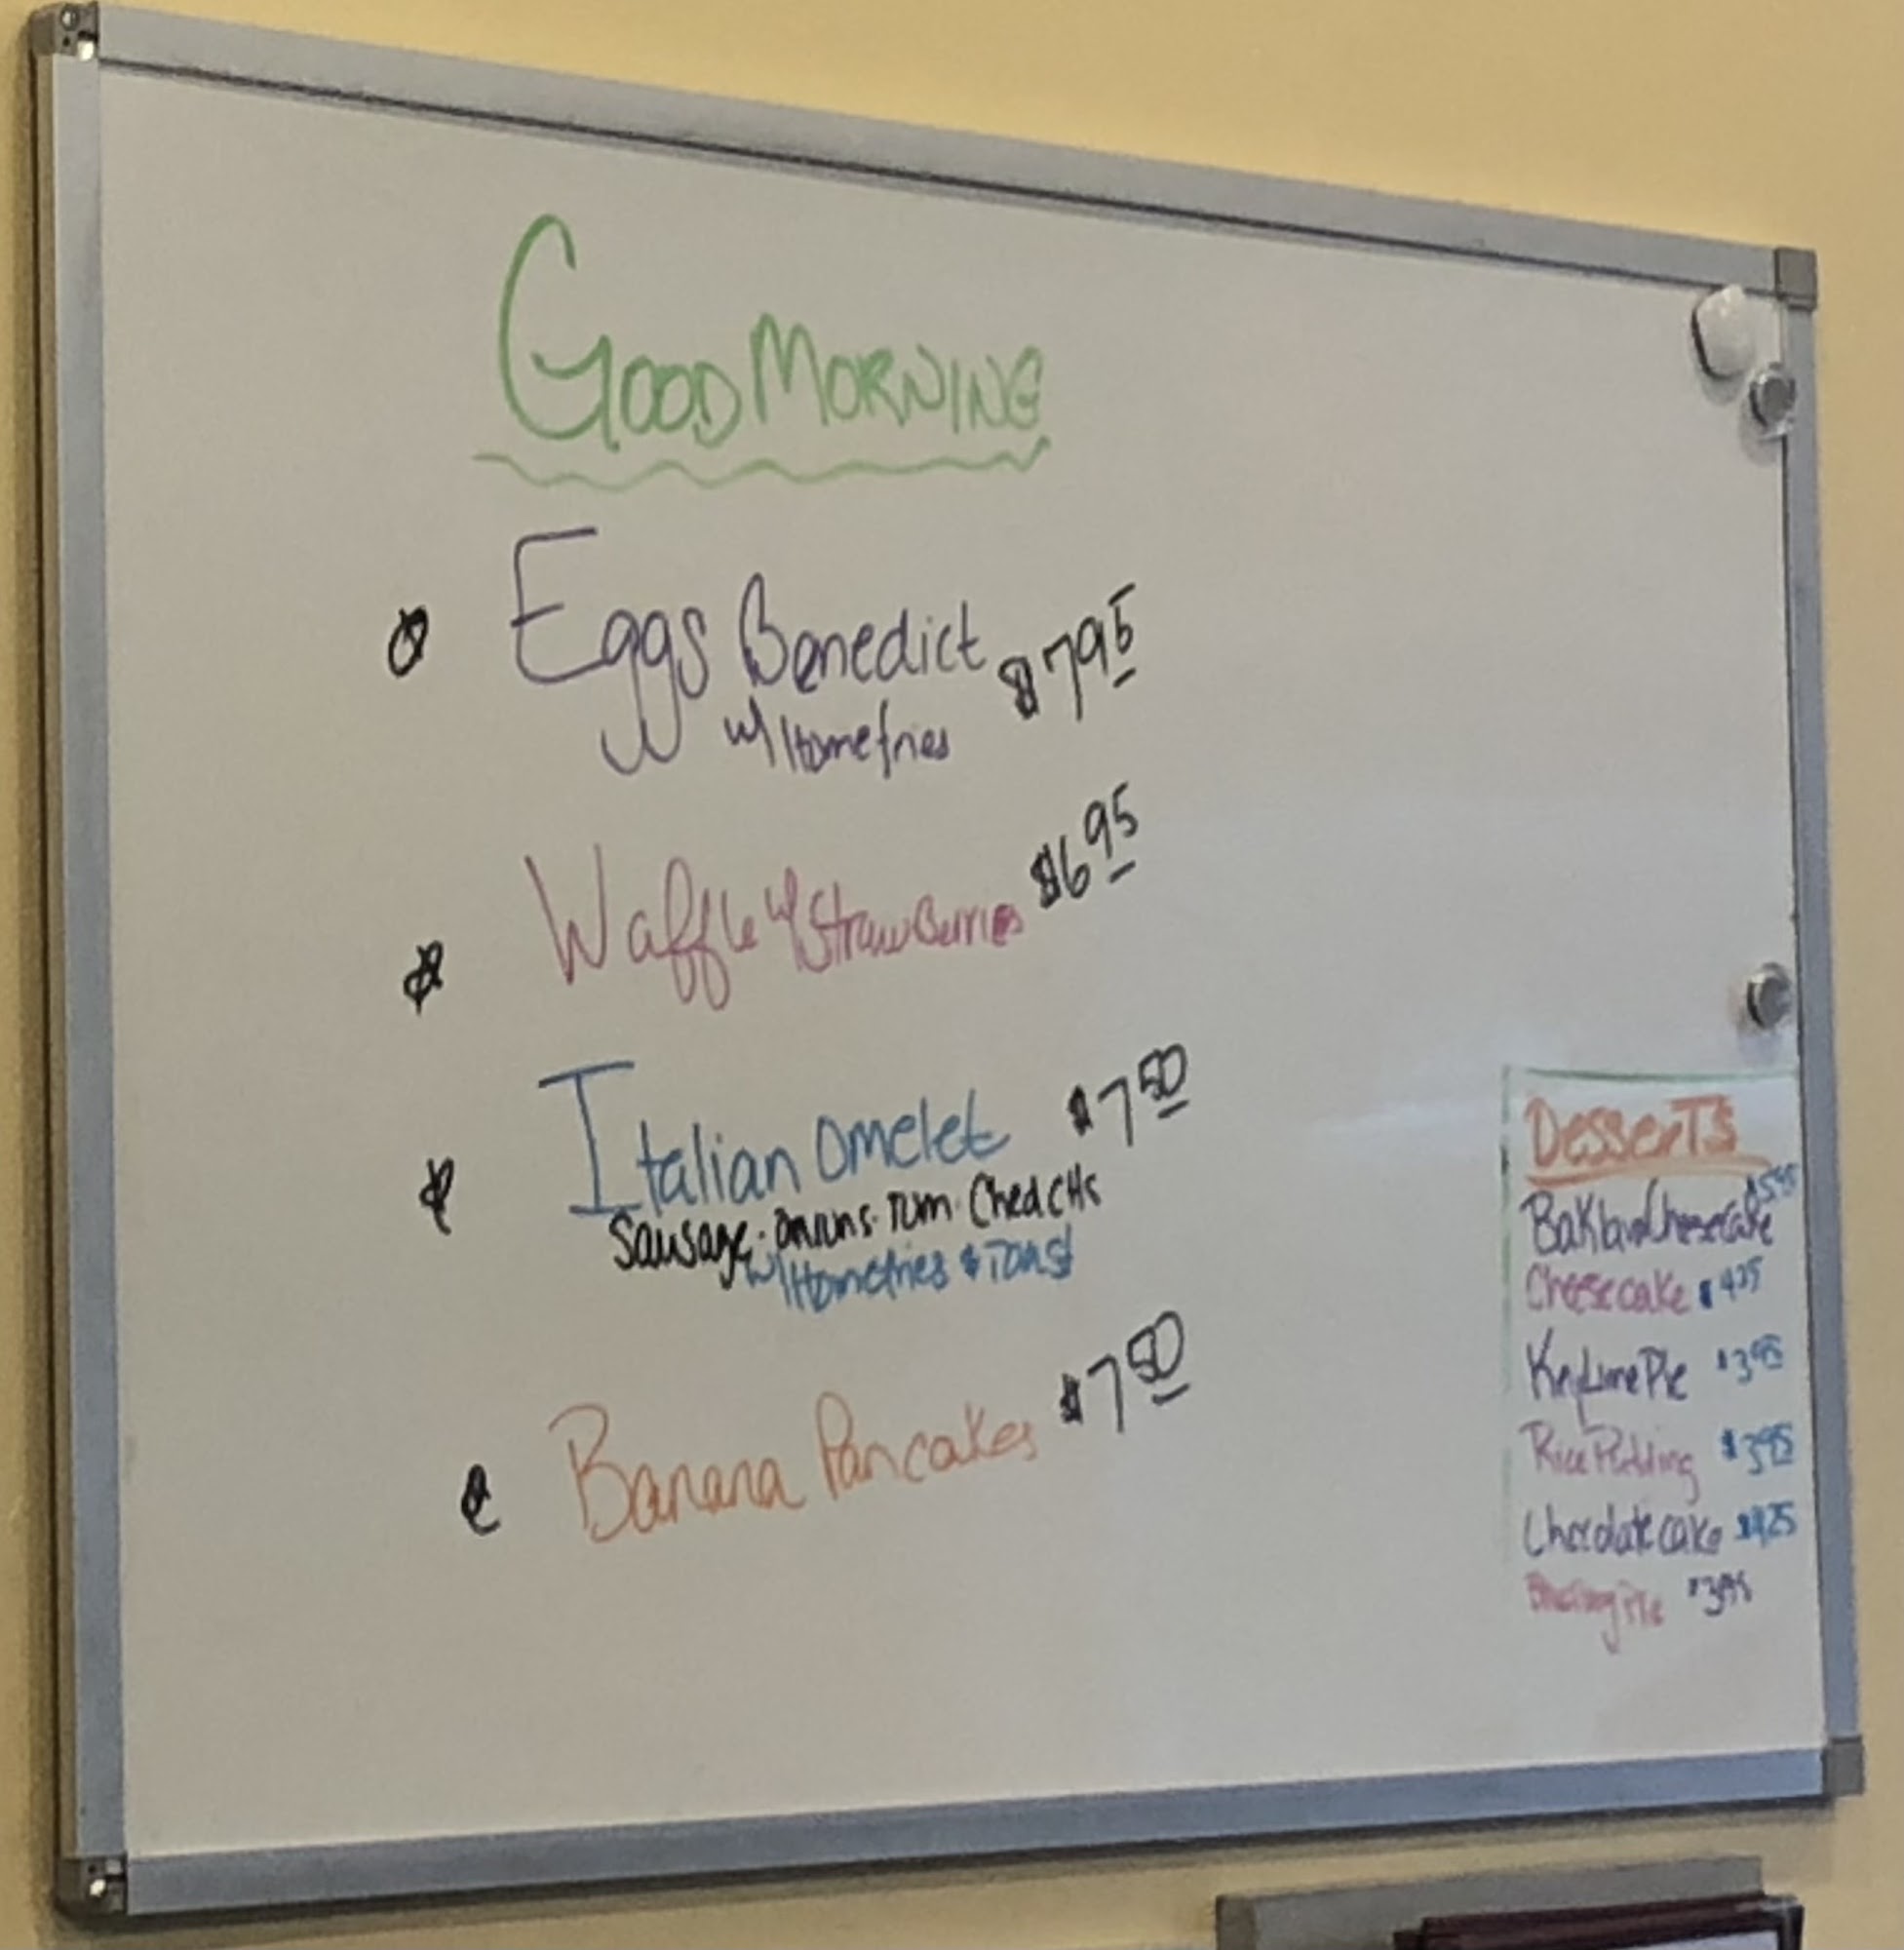 GOOD MORNING
Eggs Benedict $7 95
w/ Homefries
Waffle w/ StrawBerries $6 95
Italian omelet $7 50
Sausage · onions · Tom · Ched CHs
w/ Homefries & Toast
Banana Pancakes $7 50
DesserTs
$5 95
Baklava Cheesecake
Cheesecake $4 25
Key Lime Pie $3 95
Rice Pudding $3 95
Chocolate cake $4 25
Pie $3 95